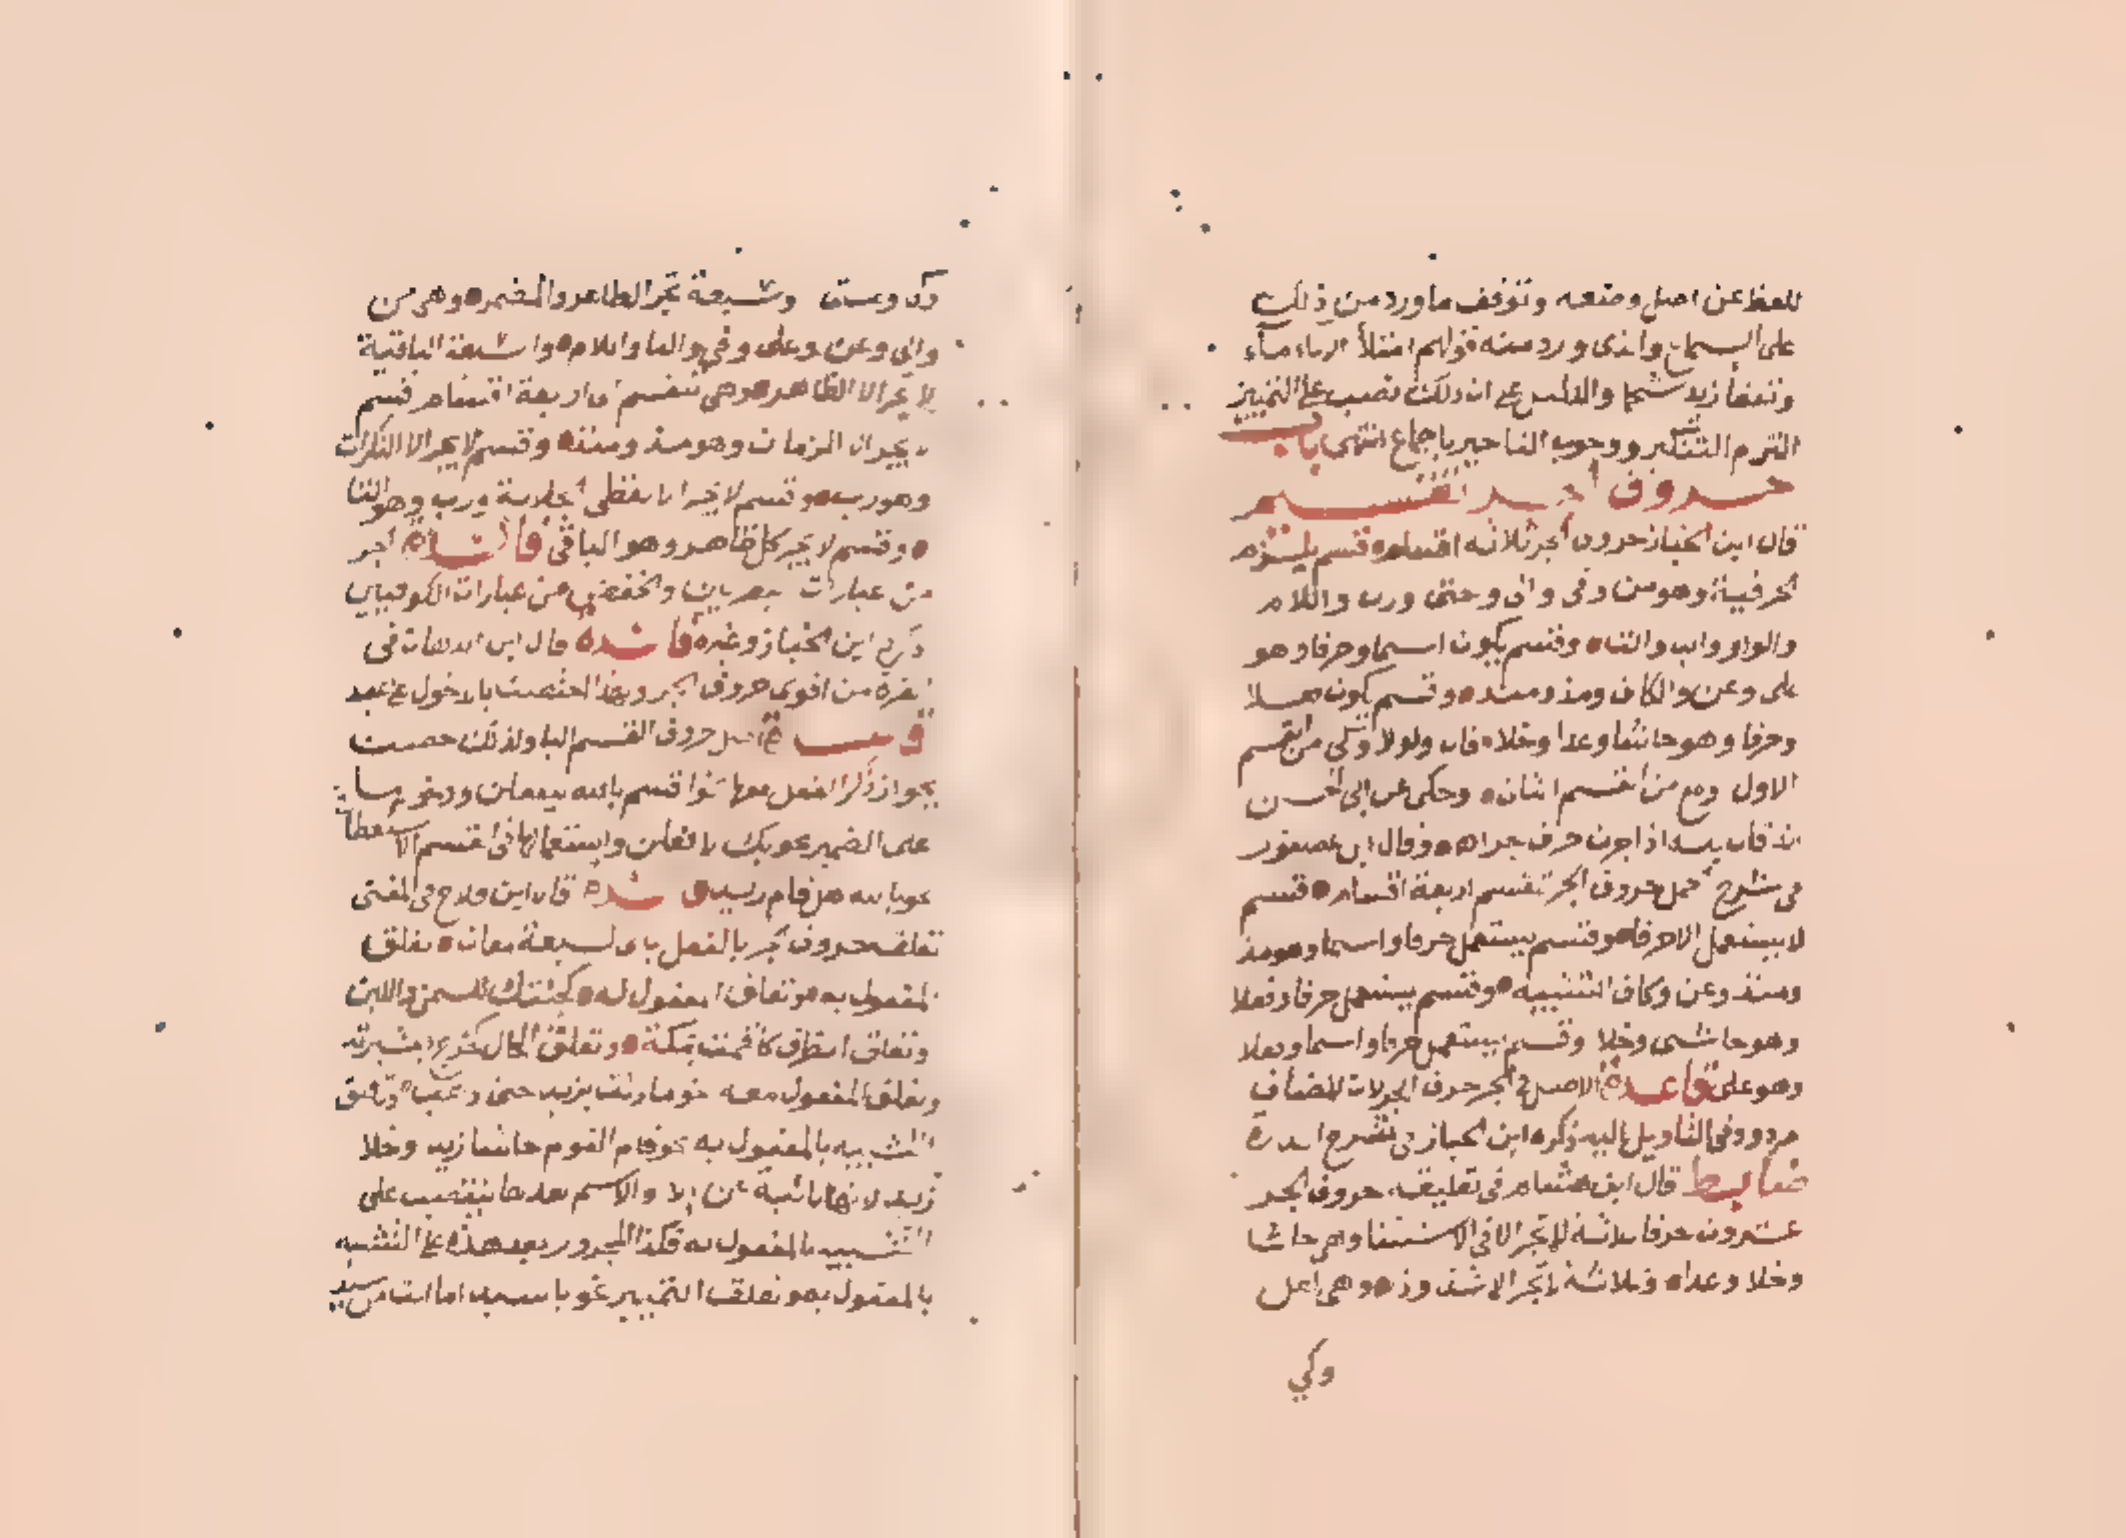 اللفظ عن اصل وضعه وتوقف ما ورد من ذلك
على السماع والذى ورد منه قولهم امتلأ الاناء ماء
وتفقأ زيد شحما والدليل على ان ذلك نصب على التمييز
التزم التنكير ووجوب التاخير باجماع انتهى باب
حروف الجر تقسيم
قال ابن الخباز حروف الجر ثلاثة اقسام قسم يلزم
الحرفية وهو من وفى والى وحتى ورب واللام
والواو والباء والتاء وقسم يكون اسما وحرفا وهو
على وعن والكاف ومذ ومنذ وقسم يكون فعلا
وحرفا وهو حاشا وعدا وخلا قال ولولا وكى من القسم
الاول ومع من القسم الثانى وحكى عن ابى الحسن
انه قال بله اذا جرت حرف جر اه وقال ابن عصفور
فى شرح الجمل حروف الجر تنقسم اربعة اقسام قسم
لا يستعمل الا حرفا وقسم يستعمل حرفا واسما وهو مذ
ومنذ وعن وكاف التشبيه وقسم يستعمل حرفا وفعلا
وهو حاشى وخلا وقسم يستعمل حرفا واسما وفعلا
وهو على قاعدة الاصل فى الجر حرف الجر لان المضاف
مردود فى التاويل اليه ذكره ابن الخباز فى شرح الدرة
ضابط قال ابن هشام فى تعليقه حروف الجر
عشرون حرفا ثلاثة لا تجر الا فى الاستثنا وهى حاشا
وخلا وعدا وثلاثة لا تجر الا شذوذا وهى لعل
وكي
وكى ومتى وسبعة تجر الظاهر والمضمر وهى من
والى وعن وعلى وفى والبا واللام والسبعة الباقية
لا تجر الا الظاهر وهى تنقسم الى اربعة اقسام قسم
لا يجر الا الزمان وهو مذ ومنذ وقسم لا يجر الا النكرات
وهو رب وقسم لا يجر الا لفظى الجلالة ورب وهو التا
وقسم لا يجر كل ظاهر وهو الباقى فائدة الجر
من عبارات البصريين والخفض من عبارات الكوفيين
ذكره ابن الخباز وغيره فائدة قال ابن الدهان فى
الغرة من اقوى حروف الجر وبهذا اختصت بالدخول على عند
قاعدة اصل حروف القسم البا ولذلك خصت
بجواز ذكر الفعل معها نحو اقسم بالله ليفعلن ودخولها
على الضمير نحو بك لافعلن واستعمالها فى القسم الاستعطافى
نحو بالله هل قام زيد فائدة قال ابن فلاح فى المغنى
تعلق حروف الجر بالفعل ياتى لسبعة معان تعلق
المفعول به وتعلق المفعول له كجئتك للسمن واللبن
وتعلق الظرف كاقمت بمكة وتعلق الحال كخرج بعشيرته
وتعلق المفعول معه نحو ما زلت بزيد حتى ذهب وتعلق
التشبيه بالمفعول به نحو قام القوم حاشا زيد وخلا
زيد لانها نائبة عن الا والاسم بعدها ينتصب على
التشبيه بالمفعول به فكذا المجرور بعد هذه على التشبيه
بالمفعول به وتعلق التمييز نحو يا سيدا ما انت من سيد